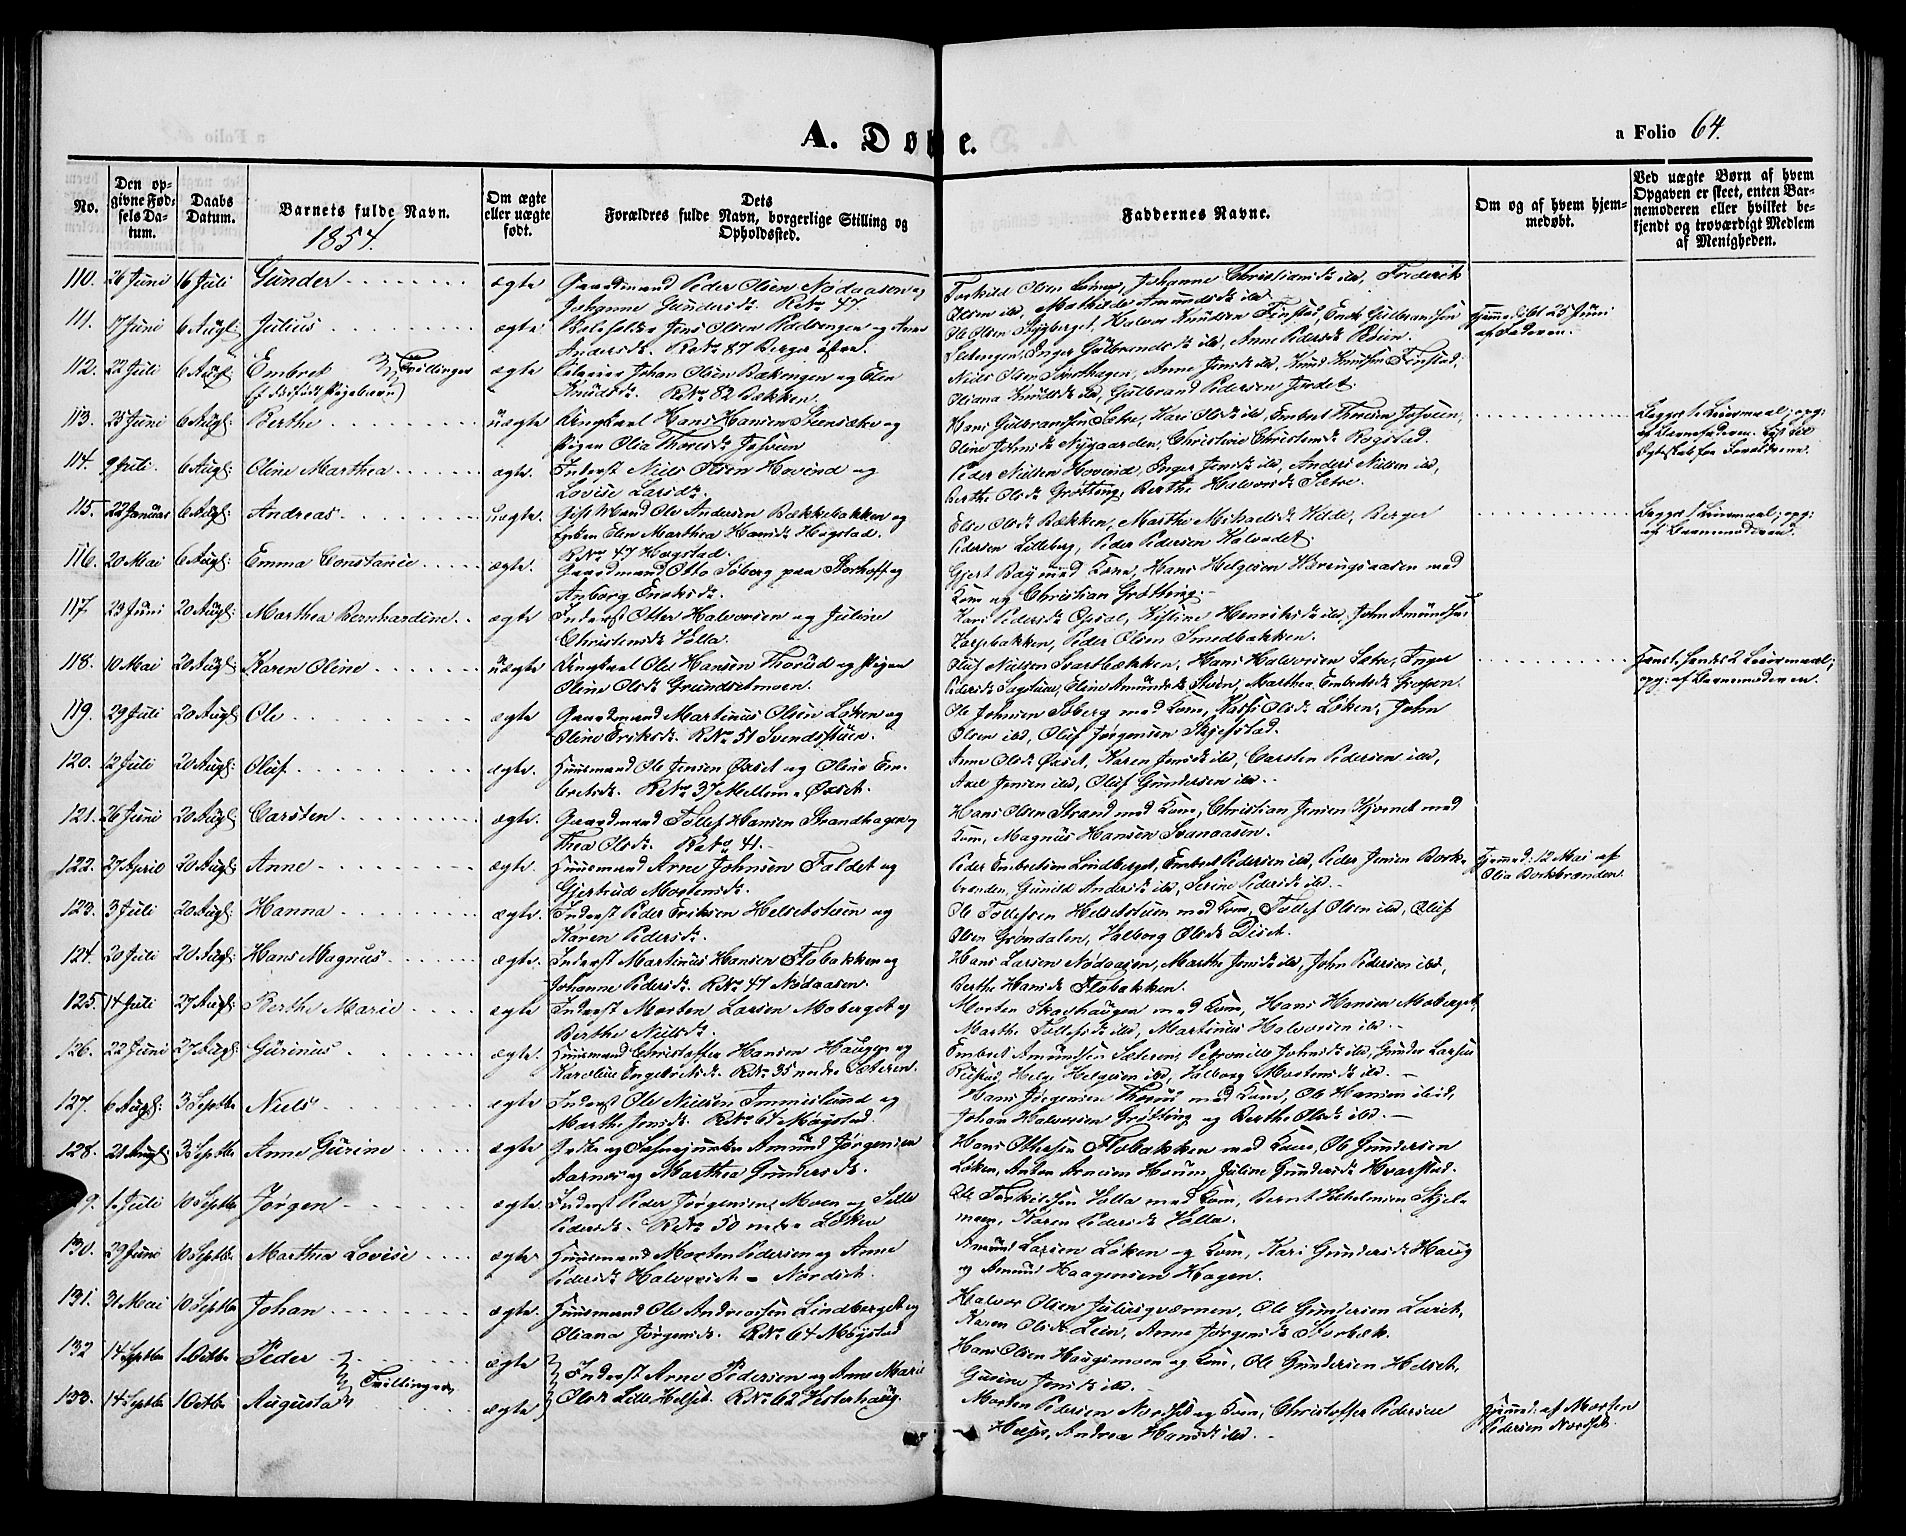 A. Døbte.
a Folio 64.
No.
Den opgivne Fødsels Datum.
Daabs Datum.
Barnets fulde Navn.
1854.
Om ægte eller uægte født.
Dets Forældres fulde Navn, borgerlige Stilling og Opholdssted.
Faddernes Navne.
Om og af hvem hjemmedøbt.
Ved uægte Børn af hvem Opgaven er skeet, enten Barnemoderen eller hvilket bekjendt og troværdigt Medlem af Menigheden.
110. 26 Juni 16 Juli Gunder ægte Gaardmand Peder Olsen Nødaasen og
Johanne Gundersdr. RNo 47.
Torkild Olsen, Johanne Christiansdr ibd, Frederik
Olsen ibd, Mathilde Amundsdr ibd.
111. 7 Juni 6 Augt: Julius ægte Jens Olsen og Anne
Andersdr. RNo 87 Berger østre.
Ole Olsen Sygberget, Halvor Knudsen Finstad, Engebr. Gulbrandsen
Inger Gulbrandsdr ibd, Anne Pedersdr
Hjemmedøbt 25 Juni
af Faderen.
112. 22 Juli 6 Augt Embret Tvillinger ægte Johan Olsen og Olea
Knudsdr. RNo 82 Bækken.
Niels Olsen, Anne Jensdr ibd, Knud Knudsen Finstad,
Oliana Knudsdr ibd, Gulbrand Pedersen Jordet.
113. 25 Juni 6 Augt: Berthe uægte Ungkarl Hans Hansen og
Pigen Olia Thoresdr
Hans Gulbrandsen Sætre, Kari Olsdr ibd, Embret Thoresen
Oline Johnsdr Nygaarden, Christine Christensdr Rogstad.
Begges 1 Leiermaal; opg:
af Barnefaderen. Lyst til
Ægteskab for Forældrene.
114. 9 Juli. 6 Augt: Oline Marthea ægte. Inderst Niels Olsen Hovind og
Lovise Larsdr.
Peder Nielsen Hovind, Inger Jensdr ibd, Anders Nielsen ibd,
Berthe Olsdr Grøtting, Berthe Halvorsdr Sætre.
115. 22 Januar 6 Augt: Andreas uægte. Gift Mand Ole Andersen Bækkebakken og
Enken Elen Marthea Hansdr Hogstad.
RNo 47 Hogstad.
Else Olsdr Bækken, Marthe Mikaelsdr Kilde, Berger
Pedersen Lilleberg, Peder Pedersen Kalvedet.
Begges 1 Leiermaal; opg:
af Barnemoderen.
116. 20 Mai 6 Augt: Emma Constance ægte. Gaardmand Otto Søberg paa Storhoff og
Anborg Enoksdr.
Gjert Bay med Kone, Hans Helgesen Hæringsaasen med
Kone og Christian Grøtting.
117. 23 Juni 20 Augt: Marthea Bernhardine. ægte Inderst Otter Halvorsen og Juline
Christensdr Holla.
Kari Pedersdr Opsal, Kistine Henriksdr ibd, John Amundsen
Torpebakken, Peder Olsen Smedbakken.
118. 10 Mai 20 Augt: Karen Oline uægte Ungkarl Ole Hansen Thorud og Pigen
Oline Olsdr Grundsetmoen.
Oluf Nielsen Svartbækken, Hans Halvorsen Sætre, Inger
Pedersdr Sagstuen, Eline Amundsdr Stien, Marthea Embretsdr Grosen.
Hans 1. hendes 2 Leiermaal;
opg: af Barnemoderen.
119. 29 Juli 20 Augt: Ole ægte Gaardmand Martinus Olsen Løken og
Oline Eriksdr. RNo 51 Svendsstuen.
Ole Johnsen Søberg med Kone, Kari Olsdr Løken, John
Olsen ibd, Oluf Jørgensen Skjefstad.
120. 2 Juli 20 Augt: Oluf ægte. Huusmand Ole Jensen Øxset og Oline Embretsdr. RNo 37 Mellem-Øxset.
Anne Olsdr Øxset, Karen Jensdr ibd, Carsten Pedersen ibd,
Axel Jensen ibd, Oluf Gundersen ibd.
121. 26 Juni 20 Augt: Carsten ægte. Gaardmand Tollef Hansen Strandhagen og
Thea Olsdr. RNo 41.
Hans Olsen Strand med Kone, Christian Jensen Kjernet med
Kone, Magnus Hansen Svanaasen.
122. 27 April 20 Augt: Anne ægte. Huusmand Arne Johnsen Faldet og
Gjertrud Mortensdr.
Peder Embretsen Lindberget, Embret Pedersen ibd, Peder Jensen Borkbrenden, Gunild Andersdr ibd, Serine Pedersdr ibd.
Hjemmed: 12 Mai af
Olia Borkbrenden.
123. 3 Juli 20 Augt: Hanna ægte. Inderst Peder Eriksen Helsetstuen og
Karen Pedersdr.
Ole Tollefsen Helsetstuen med Kone, Tollef Olsen ibd, Oluf
Olsen Grøndalen, Halborg Olsdr Diset.
124. 20 Juli 20 Augt: Hans Magnus ægte. Inderst Martinus Hansen Flobakken og
Johanne Pedersdr. RNo 47 Nødaasen.
Hans Larsen Nødaasen, Marthe Jensdr ibd, John Pedersen ibd,
Berthe Hansdr Flobakken.
125. 14 Juli 27 Augt: Berthe Marie ægte Inderst Morten Larsen Moberget og
Berthe Nielsdr.
Morten Skaehaugen med Kone, Hans Hansen Moberget,
Marthe Tollefsdr ibd, Martinus Halvorsen ibd.
126. 22 Juni 27 Augt: Gurinus ægte. Huusmand Christoffer Hansen Haugen og
Karoline Engebretsdr. RNo 35 nedre Sæteren.
Embret Amundsen Sæteren, Petronille Johnsdr ibd, Gunder Larsen
Rustad, Helge Helgesen ibd, Halborg Mortensdr ibd.
127. 6 Augt: 3 Septbr Niels ægte Inderst Ole Nielsen Immeslund og
Marthe Jensdr. RNo 64 Møystad.
Hans Jørgensen Thorud med Kone, Ole Hansen ibid,
Johan Halvorsen Grøtting og Berthe Olsdr ibd.
128. 21 Augt: 3 Septbr Anne Gurine ægte Amund Jørgensen
Aarnes og Marthea Gundersdr.
Hans Ottesen Flobakken med Kone, Ole Gundersen
Løken, Anton Arnesen Horum, Juline Gundersdr Hvarstad.
9. 1 Juli 10 Septbr Jørgen ægte Inderst Peder Jørgensen Moen og Sille
Pedersdr. RNo 50 nedre Løken
Ole Torkildsen Holla med Kone, Bernt Wilhelmsen Skjelmoen, Karen Pedersdr Holla.
130. 29 Juni 10 Septbr Marthea Lovise ægte Huusmand Morten Pedersen og Anne
Pedersdr Halvorset - Nordset.
Amund Larsen Løken og Kone, Kari Gundersdr Haug
og Amund Haagensen Hagen.
131. 31 Mai 10 Septbr Johan ægte. Huusmand Ole Andreassen Lindberget og
Oliana Jørgensdr. RNo 64 Møystad
Halvor Olsen Juliusqværnen, Ole Gundersen Leeret,
Karen Olsdr Leen, Anne Jørgensdr Storbæk.
132 14 Septbr 1 Octbr Peder Tvillinger ægte Inderst Arne Pedersen og Anne Marie
Olsdr Lille Helset. RNo 62 Vesterhaug.
Hans Olsen Haugsmoen og Kone, Ole Gundersen Helset,
Gurine Jensdr ibd.
133. 14 Septbr 1 Octbr Augusta ægte
Morten Pedersen Nordset og Kone, Christoffer Pedersen
Helset, Andrea Hansdr ibd.
Hjemmed: af Morten
Pedersen Nordset.